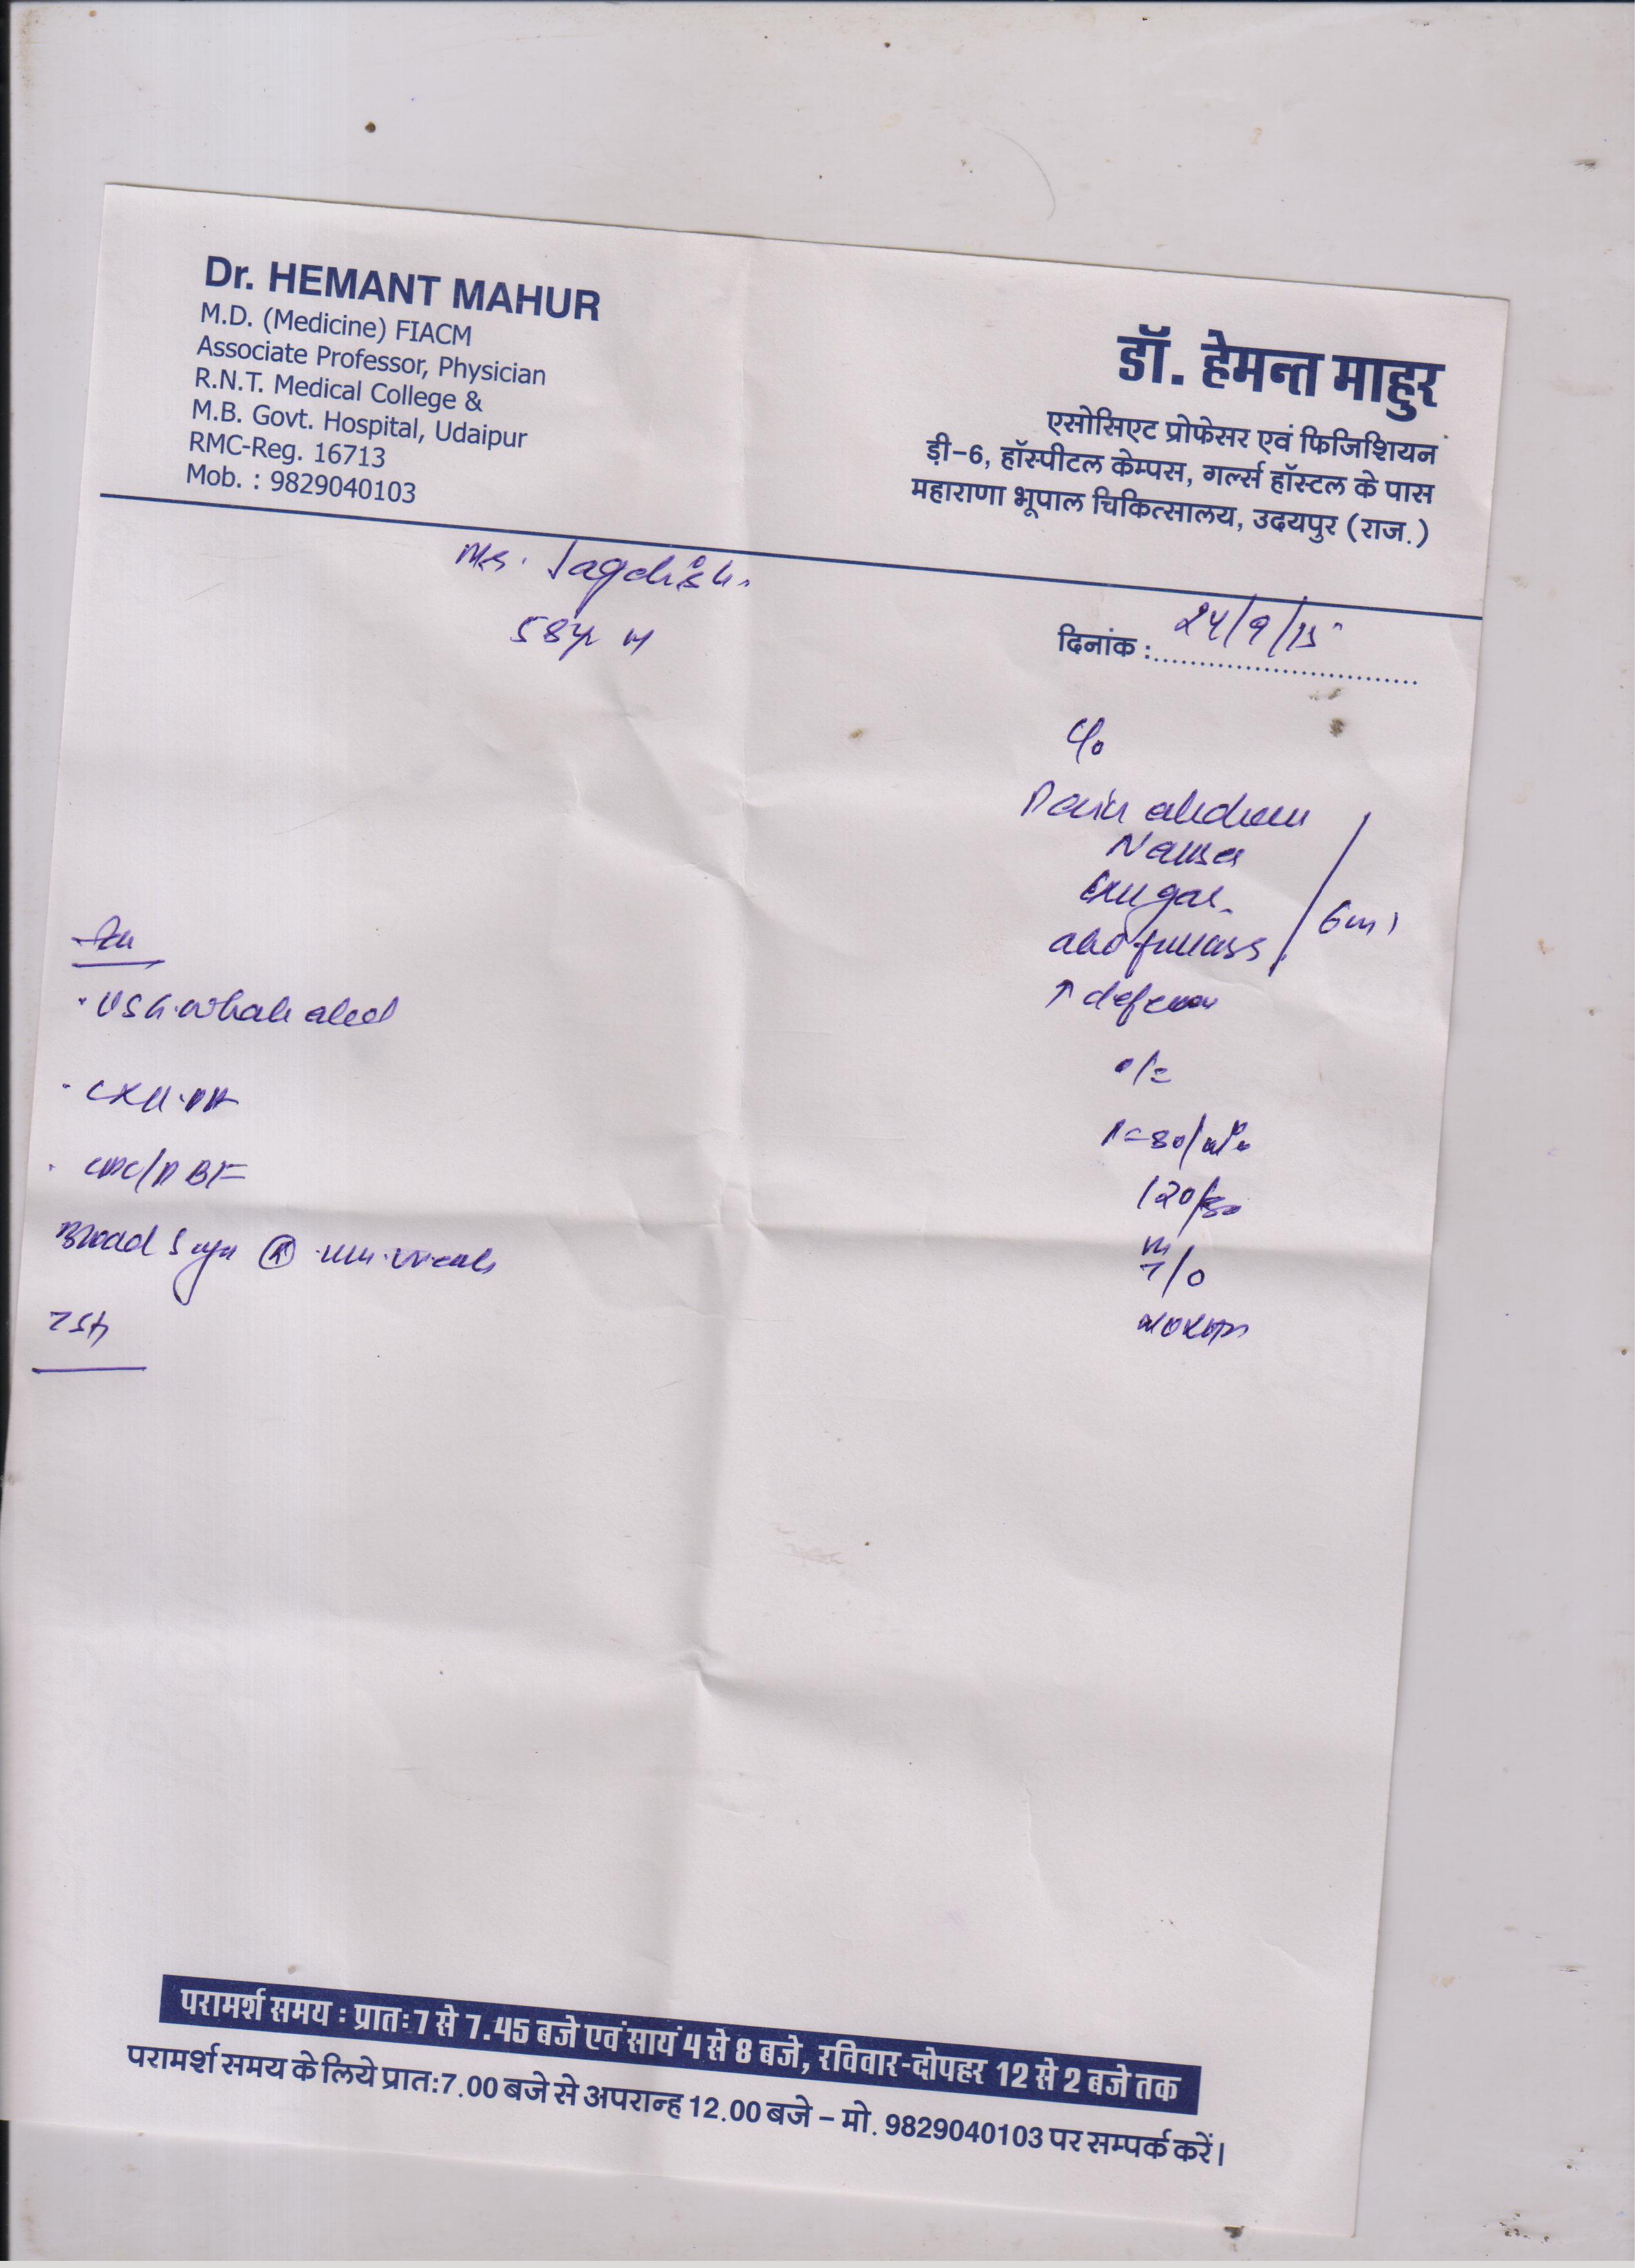 Dr. HEMANT MAHUR
M.D. (Medicine) FIACM
Associate Professor, Physician
R.N.T. Medical College &
M.B. Govt. Hospital, Udaipur
RMC-Reg. 16713
Mob. : 9829040103
डॉ. हेमन्त माहुर
एसोसिएट प्रोफेसर एवं फिजिशियन
ड़ी-6, हॉस्पीटल केम्पस, गर्ल्स हॉस्टल के पास
महाराणा भूपाल चिकित्सालय, उदयपुर (राज.)
Jagdish.
58yr M
दिनांक : 24/9/15
C/o
Pain abdom
Nausea
abd fullness
o/e
P=80/min
120/80
USG. whole abd
CXR. PA
CBC/PBF
Blood Sugar
TSH
परामर्श समय : प्रातः 7 से 7.45 बजे एवं सायं 4 से 8 बजे, रविवार-दोपहर 12 से 2 बजे तक
परामर्श समय के लिये प्रात:7.00 बजे से अपरान्ह 12.00 बजे – मो. 9829040103 पर सम्पर्क करें।